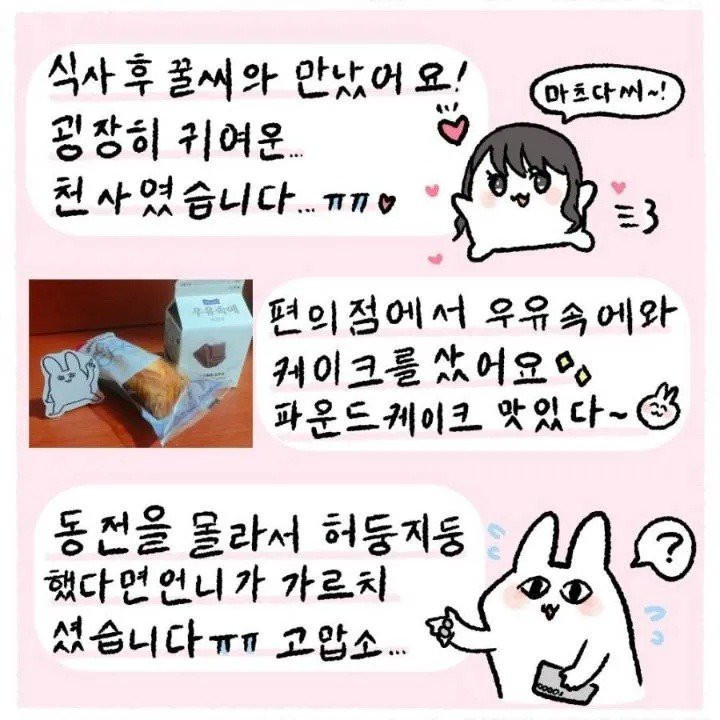 식사 후 꿀씨와 만났어요!
굉장히 귀여운...
천사였습니다...ㅠㅠ
마츠다씨~!
편의점에서 우유속에와
케이크를 샀어요
파운드케이크 맛있다~
우유속에
동전을 몰라서 허둥지둥
했다면언니가 가르치
셨습니다ㅠㅠ 고맙소...
?